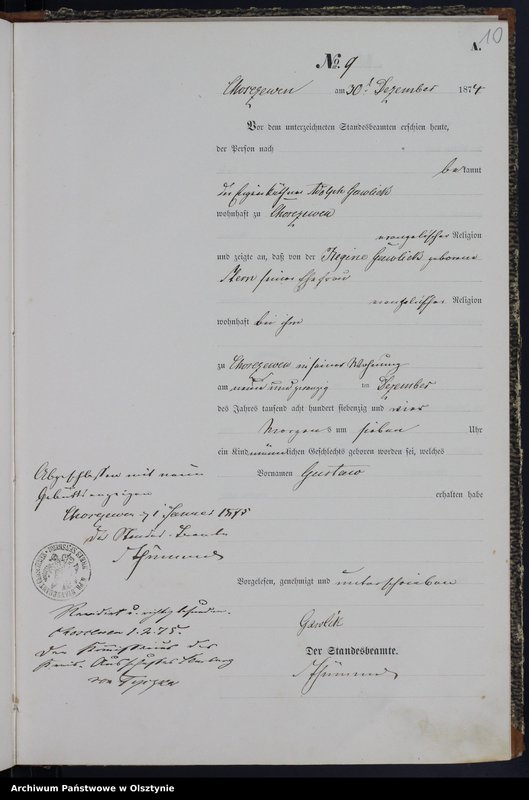 10
A.
No. 9
Chorczewen am 30t Dezember 1874
Vor dem unterzeichneten Standesbeamten erschien heute,
der Person nach
bekannt
der Eigenkäthner Adolph Gawlick
wohnhaft zu Chorczewen
evangelischer Religion
und zeigte an, daß von der Regine Gawlick geborene
seiner Ehefrau
evangelischer Religion
wohnhaft bei ihm
zu Chorczewen in seiner Wohnung
am neun und zwanzig ten Dezember
des Jahres tausend acht hundert siebenzig und vier
Morgens um sieben Uhr
ein Kind männlichen Geschlechts geboren worden sei, welches
Vornamen Gustav
erhalten habe
Abgeschlossen mit neun
Geburtsanzeigen
Chorczewen 1 Januar 1875
Der Standes-Beamte
Vorgelesen, genehmigt und unterschrieben
Revidirt u. richtig befunden.
Chorczewen 1.2.75.
Der Commissarius des
Kreis-Ausschusses
von
Gawlik
Der Standesbeamte.
Archiwum Państwowe w Olsztynie